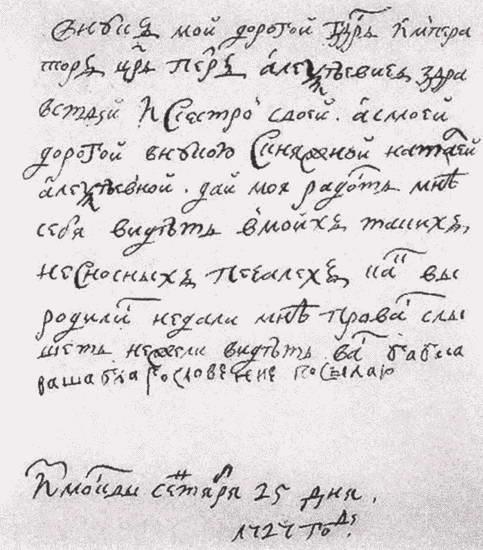 Внукъ мой дорогой гд҃рь імпера
торъ цр҃ь петръ алеѯѣевичъ здра
вствуй И Сестро своей. Асмоей
дорогой внукою Скняжной натаⷧей
алеѯѣевной. дай моя радоть мнѣ
себя видѣть вмоихъ такихъ,
несносныхъ печалехъ каⷦ вы
родилиⷭ недали мнѣ Проваⷭ слы
шеть нежели видѣть ваⷭ бабка
ваша благословение посылаю
Иⷥ москвы сеⷩтября 25 дня.
1727 году.